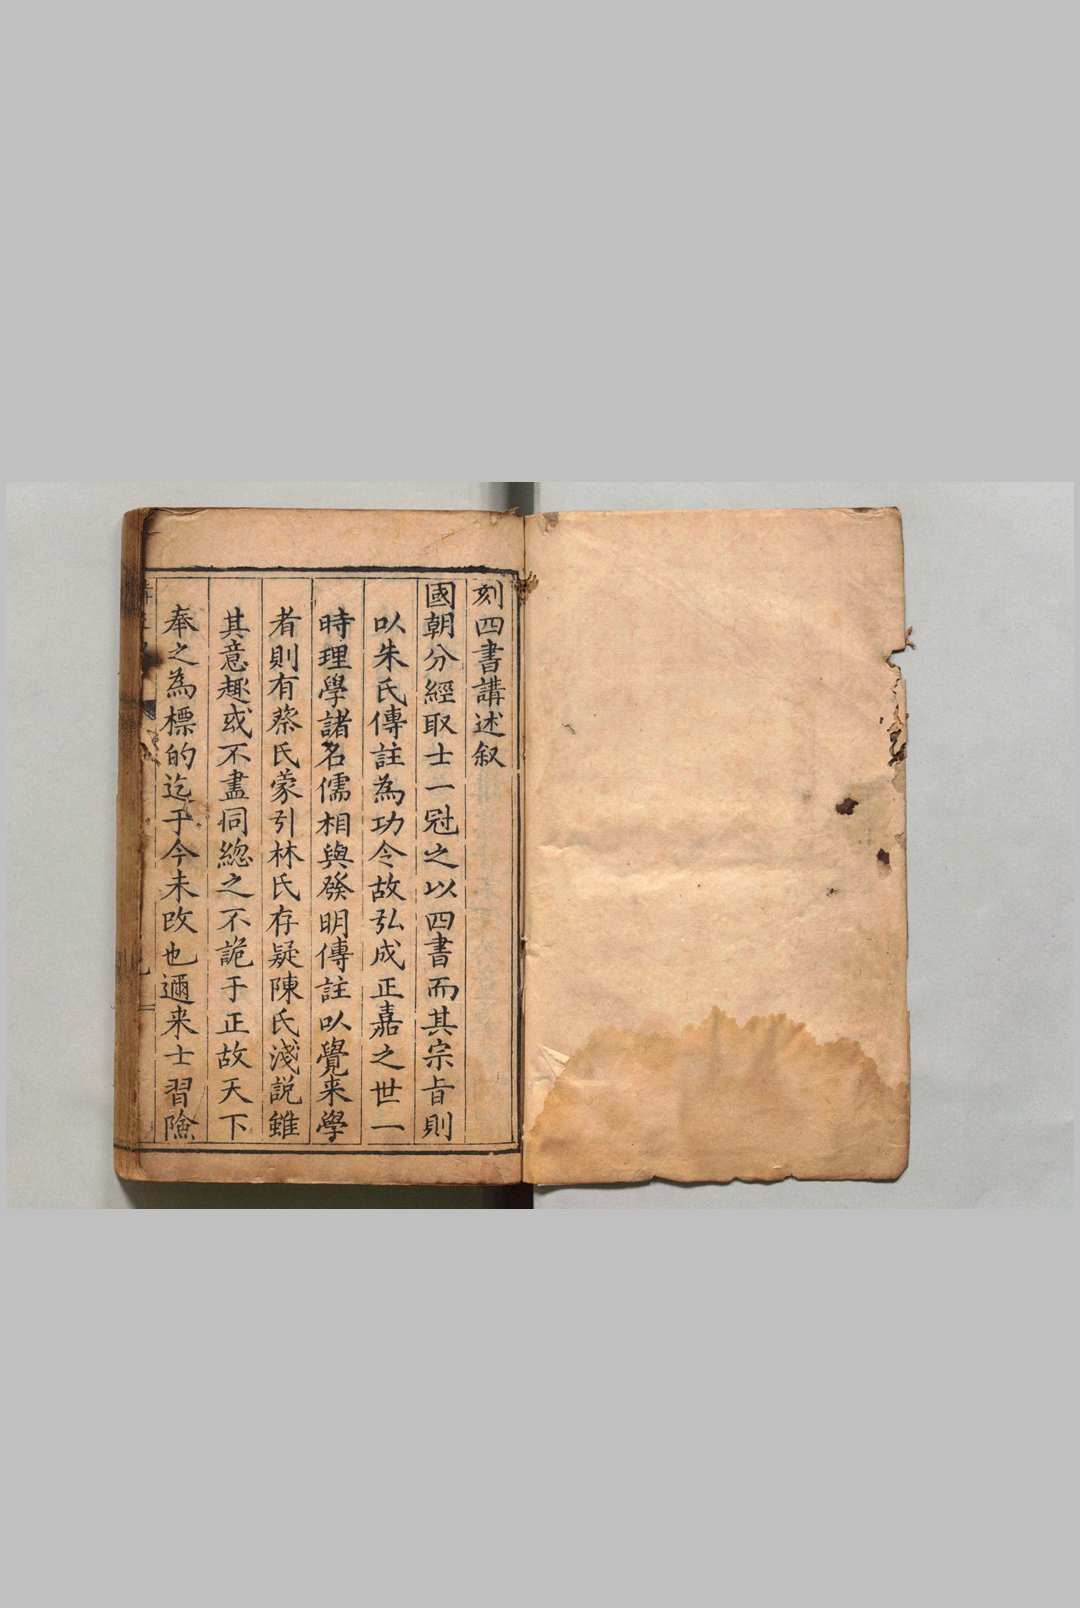 刻四書講述叙
國朝分經取士一冠之以四書而其宗旨則
以朱氏傳註為功令故弘成正嘉之世一
時理學諸名儒相與發明傳註以覺来學
者則有蔡氏蒙引林氏存疑陳氏淺說雖
其意趣或不盡同總之不詭于正故天下
奉之為標的迄于今未改也邇来士習險